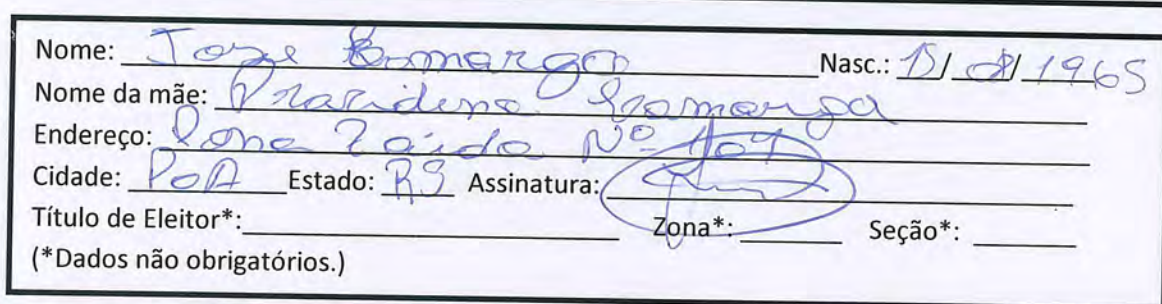 Nome: Jose Bamargo Nasc.: 15/08/1965
Nome da mãe:
Endereço: Dona Zaida Nº 101
Cidade: PoA Estado: RS Assinatura:
Título de Eleitor*: Zona*: Seção*:
(*Dados não obrigatórios.)